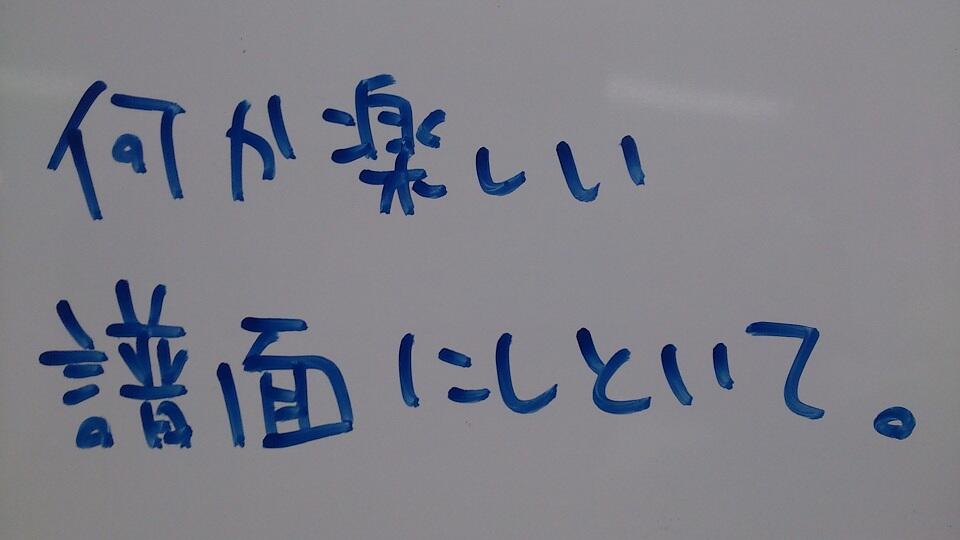 何か楽しい
譜面にしといて。